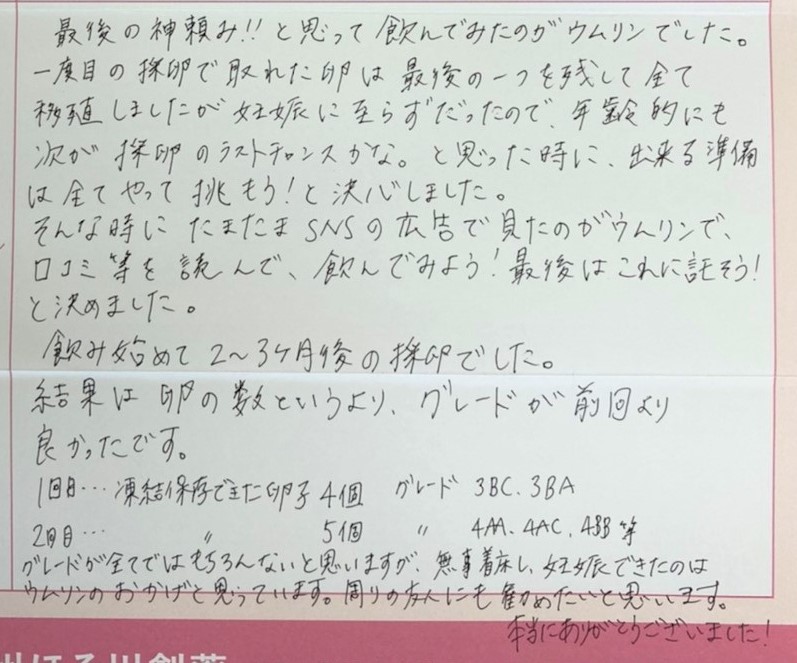 最後の神頼み!!と思って飲んでみたのがウムリンでした。
一度目の採卵で取れた卵は最後の一つを残して全て
移殖しましたが妊娠に至らずだったので、年齢的にも
次が採卵のラストチャンスかな。と思った時に、出来る準備
は全てやって挑もう!と決心しました。
そんな時にたまたまSNSの広告で見たのがウムリンで、
口コミ等を読んで、飲んでみよう!最後はこれに託そう!
と決めました。
飲み始めて2〜3ケ月後の採卵でした。
結果は卵の数というより、グレードが前回より
良かったです。
1回目… 凍結保存できた卵子4個 グレード 3BC、3BA
2回目… 〃 5個 〃 4AA、4AC、4BB等
グレードが全てではもちろんないと思いますが、無事着床し、妊娠できたのは
ウムリンのおかげと思っています。周りの友人にも勧めたいと思います。
本当にありがとうございました!